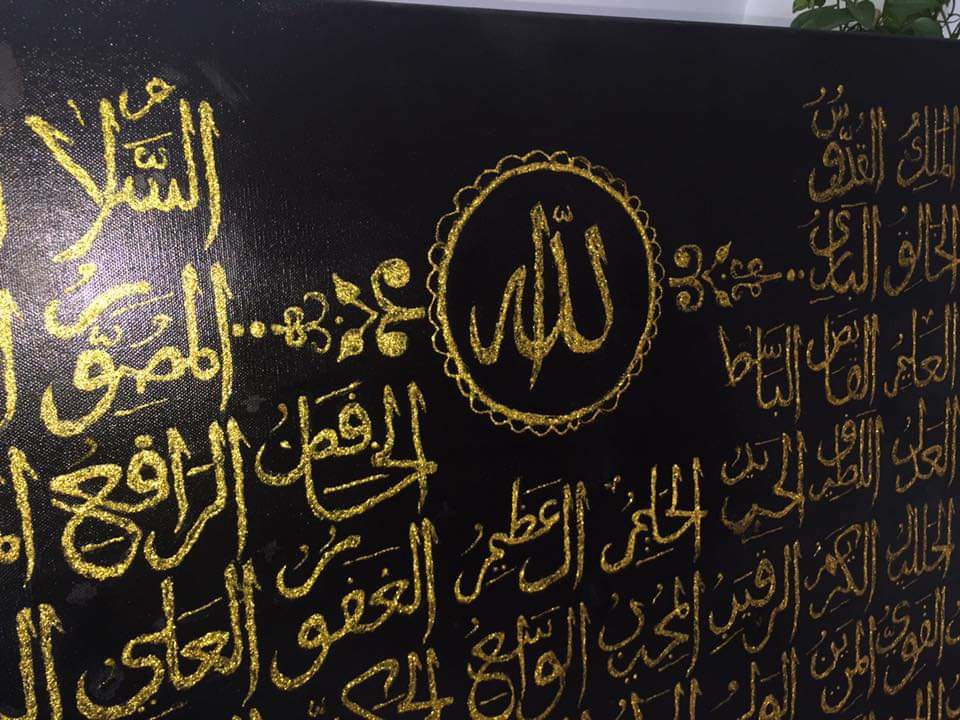 الله
الملك القدوس السلام
الخالق البارئ المصور
العليم القابض الباسط الخافض الرافع
العدل اللطيف الخبير الحليم العظيم الغفور العلي
الجليل الكريم الرقيب المجيب الواسع
القوي المتين